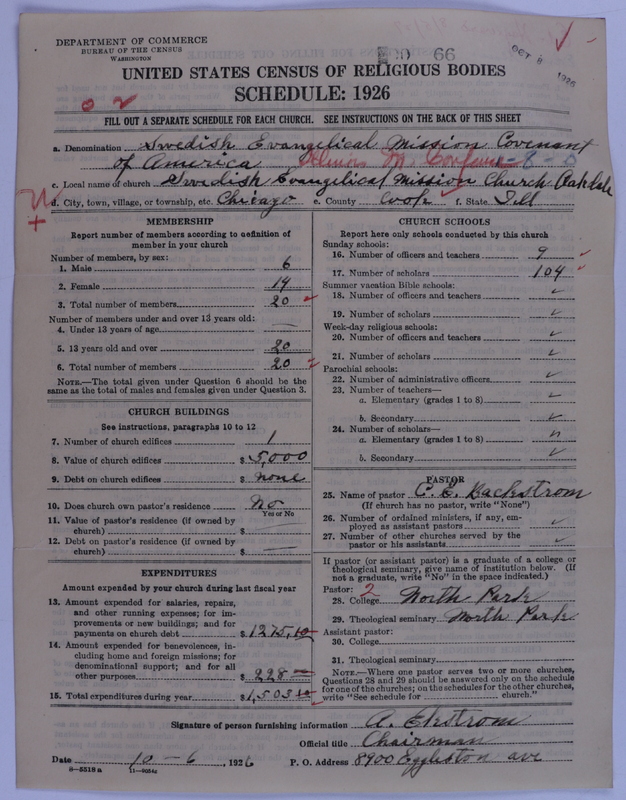 DEPARTMENT OF COMMERCE
BUREAU OF THE CENSUS
WASHINGTON
66
OCT 8 1926
UNITED STATES CENSUS OF RELIGIOUS BODIES
SCHEDULE: 1926
FILL OUT A SEPARATE SCHEDULE FOR EACH CHURCH. SEE INSTRUCTIONS ON THE BACK OF THIS SHEET
a. Denomination Swedish Evangelical Mission Covenant
of America
c. Local name of church Swedish Evangelical Mission Church Oakdale
d. City, town, village, or township, etc. Chicago e. County Cook f. State Ill
MEMBERSHIP
Report number of members according to definition of
member in your church
Number of members, by sex:
1. Male 6
2. Female 14
3. Total number of members 20
Number of members under and over 13 years old:
4. Under 13 years of age —
5. 13 years old and over 20
6. Total number of members 20
NOTE.—The total given under Question 6 should be
same as the total of males and females given under Question 3.
CHURCH BUILDINGS
See instructions, paragraphs 10 to 12
7. Number of church edifices 1
8. Value of church edifices $ 5,000
9. Debt on church edifices $ none
10. Does church own pastor's residence No
Yes or No
11. Value of pastor's residence (if owned by
church) $
12. Debt on pastor's residence (if owned by
church) $ —
EXPENDITURES
Amount expended by your church during last fiscal year
13. Amount expended for salaries, repairs,
and other running expenses; for im-
provements or new buildings; and for
payments on church debt $ 1275,10
14. Amount expended for benevolences, in-
cluding home and foreign missions; for
denominational support; and for all
other purposes $ 228
15. Total expenditures during year $ 1,503 10
CHURCH SCHOOLS
Report here only schools conducted by this church
Sunday schools:
16. Number of officers and teachers 9
17. Number of scholars 104
Summer vacation Bible schools:
18. Number of officers and teachers
19. Number of scholars
Week-day religious schools:
20. Number of officers and teachers
21. Number of scholars
Parochial schools:
22. Number of administrative officers
23. Number of teachers—
a. Elementary (grades 1 to 8)
b. Secondary
24. Number of scholars—
a. Elementary (grades 1 to 8)
b. Secondary
PASTOR
25. Name of pastor C. E. Backstrom
(If church has no pastor, write "None")
26. Number of ordained ministers, if any, em-
ployed as assistant pastors
27. Number of other churches served by the
pastor or his assistants
If pastor (or assistant pastor) is a graduate of a college or
theological seminary, give name of institution below. (If
not a graduate, write "No" in the space indicated.)
Pastor: 2
28. College North Park
29. Theological seminary North Park
Assistant pastor:
30. College
31. Theological seminary
NOTE.—Where one pastor serves two or more churches,
Questions 28 and 29 should be answered only on the schedule
for one of the churches; on the schedules for the other churches,
write "See schedule for church."
Signature of person furnishing information A. Ekstrom
Official title Chairman
Date 10-6, 1926 P. O. Address 8900 Eggleston ave
8-5518 a 11-9054c